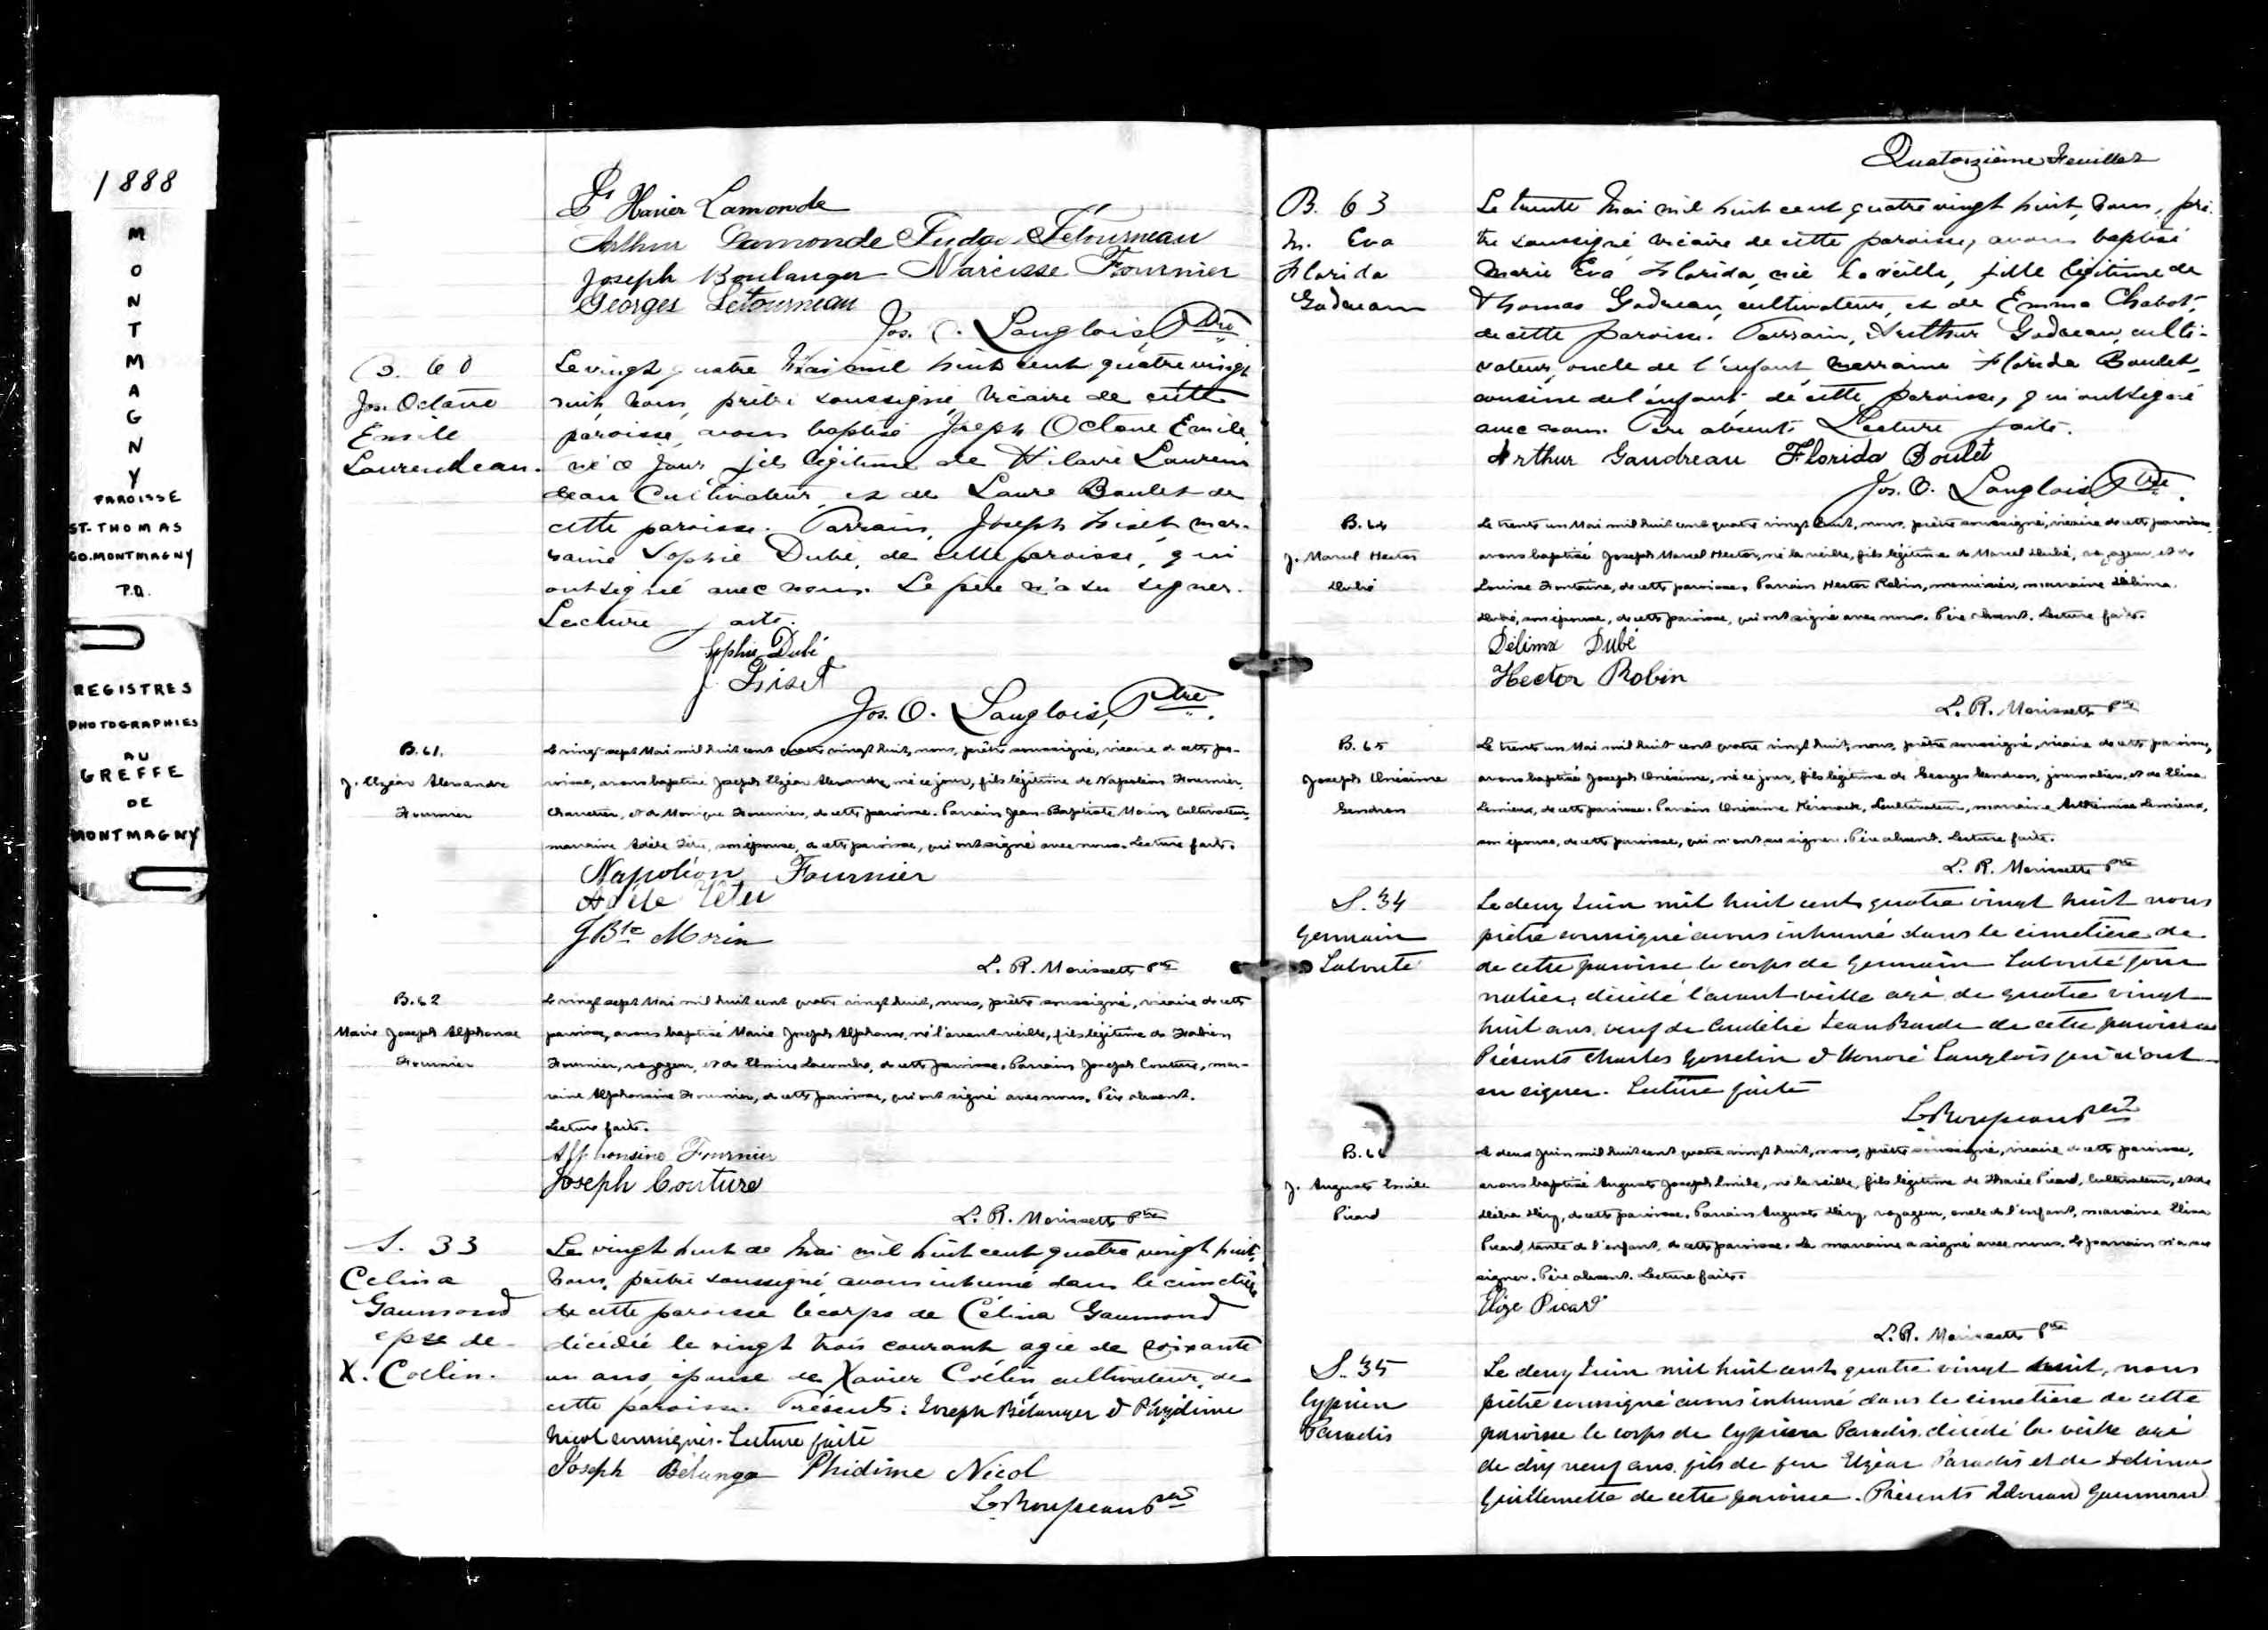 1888
MONTMAGNY
PAROISSE
ST. THOMAS
CO. MONTMAGNY
P.Q.
REGISTRES
PHOTOGRAPHIES
AU
GREFFE
DE
MONTMAGNY
Xavier Lamonde
Arthur Lamonde Letourneau
Joseph Boulanger Narcisse Fournier
Georges Letourneau
Jos. O. Langlois, Ptre
B. 60
Jos. Octave
Emile
Laurendeau.
Le vingt quatre Mai mil huit cent quatre vingt
huit, nous, prêtre soussigné, Vicaire de cette
paroisse, avons baptisé Joseph Octave Emile,
né ce jour, fils légitime de Hilaire Lauren
deau Cultivateur, et de Laure Boulet de
cette paroisse. Parrain, Joseph Lizet, mar-
raine Sophie Dubé, de cette paroisse, qui
ont signé avec nous. Le père n'a su signer.
Lecture faite.
Sophie Dubé
J. Liset
Jos. O. Langlois, Ptre.
B. 61.
J. Elzéar Alexandre
Fournier
Le vingt sept Mai mil huit cent quatre vingt huit, nous, prêtre soussigné, vicaire de cette pa-
roisse, avons baptisé Joseph Elzéar Alexandre, né ce jour, fils légitime de Napoléon Fournier,
Charretier, et de Monique Fournier, de cette paroisse. Parrain Jean-Baptiste Morin, Cultivateur,
marraine Adèle Têtu, son épouse, de cette paroisse, qui ont signé avec nous. Lecture faite.
Napoléon Fournier
Adèle Têtu
J Bte Morin
L. R. Morissette Ptre
B. 62
Marie Joseph Alphonse
Fournier
Le vingt sept Mai mil huit cent quatre vingt huit, nous, prêtre soussigné, vicaire de cette
paroisse, avons baptisé Marie Joseph Alphonse, né l'avant-veille, fils légitime de Fabien
Fournier, voyageur, et de Elmire Lacombe, de cette paroisse. Parrain Joseph Couture, mar-
raine Alphonsine Fournier, de cette paroisse, qui ont signé avec nous. Père absent.
Lecture faite.
Alphonsine Fournier
Joseph Couture
L. R. Morissette Ptre
S. 33
Celina
Gaumond
epse de
X. Collin.
Le vingt huit de Mai mil huit cent quatre vingt huit,
Nous, prêtre soussigné avons inhumé dans le cimetière
de cette paroisse le corps de Célina Gaumond
décédée le vingt trois courant agée de soixante
un ans, épouse de Xavier Collin cultivateur, de
cette paroisse. Présents: Joseph Bélanger & Phydime
Nicol soussignés. Lecture faite
Joseph Bélanger Phidime Nicol
L. Rousseau Ptre
Quatorzième Feuillet
B. 63
M. Eva
Florida
Godreau
Le trente Mai mil huit cent quatre vingt huit, Nous, prê
tre soussigné vicaire de cette paroisse, avons baptisé
Marie Eva Florida, née la veille, fille légitime de
Thomas Godreau, cultivateur, et de Emma Chabot,
de cette paroisse. Parrain, Arthur Godreau, culti-
vateur, oncle de l'enfant marraine Florida Boulet,
cousine de l'enfant, de cette paroisse, qui ont signé
avec nous. Père absent. Lecture faite.
Arthur Gaudreau Florida Boulet
Jos. O. Langlois Ptre.
B. 64
J. Marcel Hector
Dubé
Le trente un Mai mil huit cent quatre vingt huit, nous, prêtre soussigné, vicaire de cette paroisse,
avons baptisé Joseph Marcel Hector, né la veille, fils légitime de Marcel Dubé, voyageur, et de
Louise Fontaine, de cette paroisse. Parrain Hector Robin, menuisier, marraine Délima
Dubé, son épouse, de cette paroisse, qui ont signé avec nous. Père absent. Lecture faite.
Délima Dubé
Hector Robin
L. R. Morissette Ptre
B. 65
Joseph Onésime
Gendron
Le trente un Mai mil huit cent quatre vingt huit, nous, prêtre soussigné, vicaire de cette paroisse,
avons baptisé Joseph Onésime, né ce jour, fils légitime de Georges Gendron, journalier, et de Elisa
Lemieux, de cette paroisse. Parrain Onésime Kirouack, Cultivateur, marraine Arthémise Lemieux,
son épouse, de cette paroisse, qui n'ont su signer. Père absent. Lecture faite.
L. R. Morissette Ptre
S. 34
Germain
Labonté
Le deux Juin mil huit cents quatre vingt huit nous
prêtre soussigné avons inhumé dans le cimetière de
de cette paroisse le corps de Germain Labonté jour
nalier, décédé l'avant veille agé de quatre vingt
huit ans, veuf de de cette paroisse
Présents Charles Gosselin & Honoré Langlois qui n'ont
su signer. Lecture faite
L. Rousseau Ptre
B. 66
J. Auguste Emile
Picard
Le deux Juin mil huit cent quatre vingt huit, nous, prêtre soussigné, vicaire de cette paroisse,
avons baptisé Auguste Joseph Emile, né la veille, fils légitime de Picard, Cultivateur, et de
de cette paroisse. Parrain Auguste voyageur, oncle de l'enfant, marraine Elisa
Picard, tante de l'enfant, de cette paroisse. La marraine a signé avec nous. Le parrain n'a su
signer. Père absent. Lecture faite.
Elize Picard
L. R. Morissette Ptre
S. 35
Cyprien
Paradis
Le deux Juin mil huit cents quatre vingt huit, nous
prêtre soussigné avons inhumé dans le cimetière de cette
paroisse le corps de Cyprien Paradis décédé la veille agé
de dix neuf ans, fils de feu Elzéar Paradis et de
Guillemette de cette paroisse. Présents Edouard Gaumond